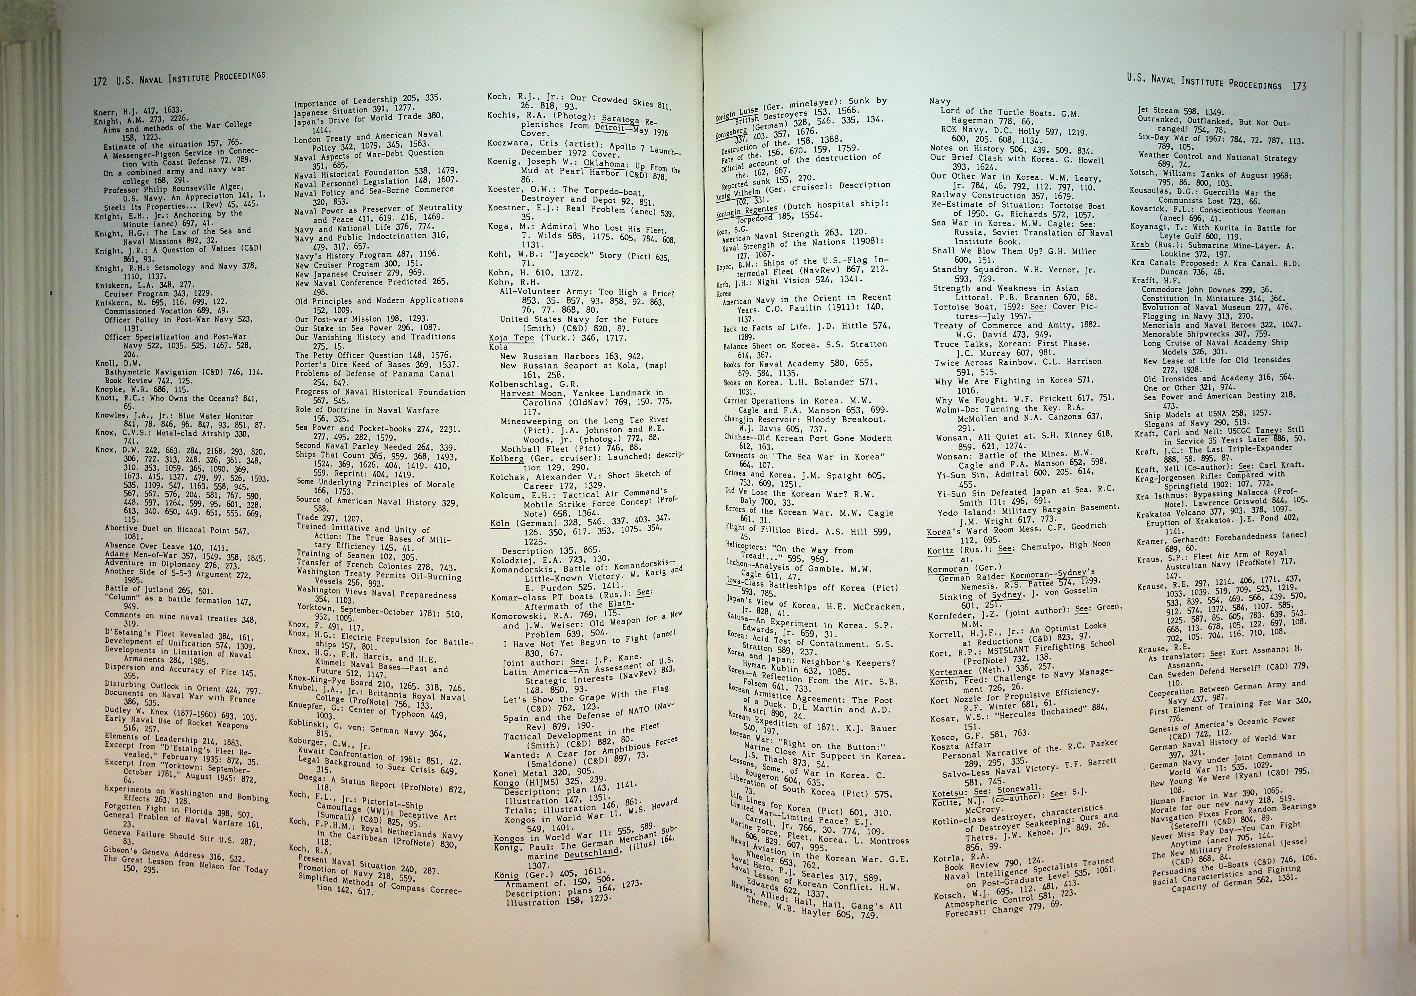 172 U.S. NAVAL INSTITUTE PROCEEDINGS
Knerr, H.J. 417, 1633.
Knight, A.M. 273, 2226.
Aims and methods of the War College
158, 1223.
Estimate of the situation 157, 765.
A Messenger-Pigeon Service in Connec-
tion with Coast Defense 72, 789.
On a combined army and navy war
college 168, 291.
Professor Philip Rounseville Alger,
U.S. Navy. An Appreciation 141, 1.
Steels Its Properties... (Rev) 45, 445.
Knight, E.H., Jr.: Anchoring by the
Minute (anec) 697, 41.
Knight, H.G.: The Law of the Sea and
Naval Missions 892, 32.
Knight, J.R.: A Question of Values (C&D)
861, 93.
Knight, R.H.: Seismology and Navy 378,
1110, 1137.
Kniskern, L.A. 348, 277.
Cruiser Program 343, 1229.
Kniskern, M. 695, 116, 699, 122.
Commissioned Vocation 689, 49.
Officer Policy in Post-War Navy 523,
1191.
Officer Specialization and Post-War
Navy 522, 1035. 525, 1467. 528,
204.
Knoll, D.W.
Bathymetric Navigation (C&D) 746, 114.
Book Review 742, 125.
Knopke, W.R. 686, 115.
Knott, R.C.: Who Owns the Oceans? 841,
65.
Knowles, J.A., Jr.: Blue Water Monitor
841, 78. 846, 96. 847, 93. 851, 87.
Knox, C.V.S.: Metal-clad Airship 330,
741.
Knox, D.W. 242, 663. 284, 2168. 293, 820.
306, 722. 313, 248. 326, 361. 348,
310. 353, 1059. 365, 1090. 369,
1673. 415, 1327. 479, 97. 526, 1593.
535, 1109. 547, 1163. 558, 945.
567, 567. 576, 204. 581, 767. 590,
448. 597, 1264. 599, 95. 601, 328.
613, 340. 650, 449. 651, 555. 669,
115.
Abortive Duel on Hicacal Point 547,
1081.
Absence Over Leave 140, 1411.
Adams Men-of-War 357, 1549. 358, 1845.
Adventure in Diplomacy 276, 273.
Another Side of 5-5-3 Argument 272,
1985.
Battle of Jutland 265, 501.
"Column" as a battle formation 147,
949.
Comments on nine naval treaties 348,
319.
D'Estaing's Fleet Revealed 384, 161.
Development of Unification 574, 1309.
Developments in Limitation of Naval
Armaments 284, 1985.
Dispersion and Accuracy of Fire 145,
355.
Disturbing Outlook in Orient 424, 797.
Documents on Naval War with France
386, 535.
Dudley W. Knox (1877-1960) 693, 103.
Early Naval Use of Rocket Weapons
516, 257.
Elements of Leadership 214, 1883.
Excerpt from "D'Estaing's Fleet Re-
vealed," February 1935: 872, 35.
Excerpt from "Yorktown: September-
October 1781," August 1945: 872,
64.
Experiments on Washington and Bombing
Effects 263, 128.
Forgotten Fight in Florida 398, 507.
General Problem of Naval Warfare 161,
23.
Geneva Failure Should Stir U.S. 287,
83.
Gibson's Geneva Address 316, 532.
The Great Lesson from Nelson for Today
150, 295.
Importance of Leadership 205, 335.
Japanese Situation 391, 1277.
Japan's Drive for World Trade 380,
1414.
London Treaty and American Naval
Policy 342, 1079. 345, 1563.
Naval Aspects of War-Debt Question
351, 685.
Naval Historical Foundation 538, 1479.
Naval Personnel Legislation 148, 1607.
Naval Policy and Sea-Borne Commerce
320, 853.
Naval Power as Preserver of Neutrality
and Peace 411, 619. 416, 1469.
Navy and National Life 376, 774.
Navy and Public Indoctrination 316,
479. 317, 657.
Navy's History Program 487, 1196.
New Cruiser Program 300, 151.
New Japanese Cruiser 279, 969.
New Naval Conference Predicted 265,
498.
Old Principles and Modern Applications
152, 1009.
Our Post-war Mission 198, 1293.
Our Stake in Sea Power 296, 1087.
Our Vanishing History and Traditions
275, 15.
The Petty Officer Question 148, 1576.
Porter's Dire Need of Bases 369, 1537.
Problems of Defense of Panama Canal
254, 647.
Progress of Naval Historical Foundation
567, 545.
Role of Doctrine in Naval Warfare
156, 325.
Sea Power and Pocket-books 274, 2231.
277, 495. 282, 1579.
Second Naval Parley Needed 264, 339.
Ships That Count 365, 959. 368, 1493,
1524. 369, 1626. 404, 1419. 410,
559. Reprint: 404, 1419.
Some Underlying Principles of Morale
166, 1753.
Source of American Naval History 329,
588.
Trade 297, 1207.
Trained Initiative and Unity of
Action: The True Bases of Mili-
tary Efficiency 145, 41.
Training of Seamen 102, 305.
Transfer of French Colonies 278, 743.
Washington Treaty Permits Oil-Burning
Vessels 256, 903.
Washington Views Naval Preparedness
354, 1103.
Yorktown, September-October 1781; 510,
952, 1005.
Knox, F. 491, 117.
Knox, H.G.: Electric Propulsion for Battle-
Ships 157, 801.
Knox, H.G., F.R. Harris, and H.E.
Kimmel: Naval Bases—Past and
Future 512, 1147.
Knox-King-Pye Board 210, 1265. 318, 746.
Knubel, J.A., Jr.: Britannia Royal Naval
College (ProfNote) 756, 133.
Knuepfer, G.: Center of Typhoon 449,
1003.
Koblinski, G. von: German Navy 364,
815.
Koburger, C.W., Jr.
Kuwait Confrontation of 1961: 851, 42.
Legal Background to Suez Crisis 649,
315.
Omega: A Status Report (ProfNote) 872,
118.
Koch, F.L., Jr.: Pictorial—Ship
Camouflage (WWI): Deceptive Art
(Sumrall) (C&D) 825, 95.
Koch, F.P.H.M.: Royal Netherlands Navy
in the Caribbean (ProfNote) 830,
118.
Koch, R.A.
Present Naval Situation 240, 287.
Promotion of Navy 218, 559.
Simplified Methods of Compass Correc-
tion 142, 617.
Koch, R.J., Jr.: Our Crowded Skies 811,
26. 818, 93.
Kochis, R.A. (Photog): Saratoga Re-
plenishes from Detroit—May 1976
Cover.
Koczwara, Cris (artist): Apollo 7 Launch—
December 1972 Cover.
Koenig, Joseph W.: Oklahoma: Up From the
Mud at Pearl Harbor (C&D) 878,
86.
Koester, O.W.: The Torpedo-boat,
Destroyer and Depot 92, 851.
Koestner, E.J.: Real Problem (anec) 539,
35.
Koga, M.: Admiral Who Lost His Fleet,
T. Wilds 585, 1175. 605, 784. 608,
1131.
Kohl, W.B.: "Jaycock" Story (Pict) 635,
71.
Kohn, H. 610, 1372.
Kohn, R.H.
All-Volunteer Army: Too High a Price?
853, 35. 857, 93. 858, 92. 863,
76, 77. 868, 80.
United States Navy for the Future
(Smith) (C&D) 820, 87.
Koja Tepe (Turk.) 346, 1717.
Kola
New Russian Harbors 163, 942.
New Russian Seaport at Kola, (map)
161, 256.
Kolbenschlag, G.R.
Harvest Moon, Yankee Landmark in
Carolina (OldNav) 769, 150. 775,
117.
Minesweeping on the Long Tao River
(Pict). J.A. Johnson and R.E.
Woods, Jr. (photog.) 772, 88.
Mothball Fleet (Pict) 746, 88.
Kolberg (Ger. cruiser): Launched; descrip-
tion 129, 290.
Kolchak, Alexander V.: Short Sketch of
Career 172, 1329.
Kolcum, E.H.: Tactical Air Command's
Mobile Strike Force Concept (Prof-
Note) 658, 1364.
Köln (German) 328, 546. 337, 403. 347,
126. 350, 617. 353, 1075. 354,
1225.
Description 135, 865.
Kolodziej, E.A. 723, 130.
Komandorskis, Battle of: Komandorskis—
Little-Known Victory. W. Karig and
E. Purdon 525, 1411.
Komar-class PT boats (Rus.): See:
Aftermath of the Elath.
Komorowski, R.A. 769, 175.
and J.W. Weiser: Old Weapon for a New
Problem 639, 504.
I Have Not Yet Begun to Fight (anec)
830, 67.
Joint author: See: J.P. Kane.
Latin America—An Assessment of U.S.
Strategic Interests (NavRev) 843,
148. 850, 93.
Let's Show the Grape With the Flag
(C&D) 762, 123.
Spain and the Defense of NATO (Nav-
Rev) 879, 190.
Tactical Development in the Fleet
(Smith) (C&D) 882, 80.
Wanted: A Czar for Amphibious Forces
(Smaldone) (C&D) 897, 73.
Konel Metal 320, 905.
Kongo (HIJMS) 325, 239.
Description; plan 143, 1141.
Illustration 147, 1351.
Trials; illustration 146, 861.
Kongos in World War II. W.S. Howard
549, 1401.
Kongos in World War II: 555, 589.
Konig, Paul: The German Merchant Sub-
marine Deutschland, (illus) 164,
1307.
König (Ger.) 405, 1611.
Armament of, 150, 506.
Description; plans 164, 1273.
Illustration 158, 1273.
U.S. NAVAL INSTITUTE PROCEEDINGS 173
Königin Luise (Ger. minelayer): Sunk by
British Destroyers 153, 1566.
Königsberg (German) 328, 546. 335, 134.
337, 403. 357, 1676.
Destruction of the, 158, 1388.
Fate of the, 156, 670. 159, 1759.
Official account of the destruction of
the, 162, 667.
Reported sunk 155, 270.
König Wilhelm (Ger. cruiser): Description
102, 331.
Koningin Regentes (Dutch hospital ship):
Torpedoed 185, 1554.
American Naval Strength 263, 120.
Naval Strength of the Nations (1908):
127, 1087.
Ships of the U.S.-Flag In-
termodal Fleet (NavRev) 867, 212.
J.H.: Night Vision 524, 1341.
Korea
American Navy in the Orient in Recent
Years. C.O. Paullin (1911): 140,
1137.
Back to Facts of Life. J.D. Hittle 574,
1289.
Balance Sheet on Korea. S.S. Stratton
614, 367.
Books for Naval Academy 580, 655,
679. 584, 1135.
Books on Korea. L.H. Bolander 571,
1031.
Carrier Operations in Korea. M.W.
Cagle and F.A. Manson 653, 699.
Changjin Reservoir: Bloody Breakout.
W.J. Davis 605, 737.
Chinhae—Old Korean Port Gone Modern
612, 163.
Comments on "The Sea War in Korea"
664, 107.
Crimea and Korea. J.M. Spaight 605,
753. 609, 1251.
Did We Lose the Korean War? R.W.
Daly 700, 33.
Errors of the Korean War. M.W. Cagle
661, 31.
Flight of Filliloo Bird. A.S. Hill 599,
45.
Helicopters: "On the Way from
Tread!..." 595, 969.
Inchon—Analysis of Gamble. M.W.
Cagle 611, 47.
Iowa-Class Battleships off Korea (Pict)
593, 785.
Japan's View of Korea. H.E. McCracken,
Jr. 828, 41.
Katusa—An Experiment in Korea. S.P.
Edwards, Jr. 659, 31.
Korea: Acid Test of Containment. S.S.
Stratton 589, 237.
Korea and Japan: Neighbor's Keepers?
Hyman Kublin 632, 1085.
Korea—A Reflection From the Air. S.B.
Folsom 641, 733.
Korean Armistice Agreement: The Foot
of a Duck. D.L Martin and A.D.
Nairi 890, 24.
Korean Expedition of 1871. K.J. Bauer
540, 197.
Korean War: "Right on the Button:"
Marine Close Air Support in Korea.
J.S. Thach 873, 54.
Lessons, Some, of War in Korea. C.
Rougeron 604, 635.
Liberation of South Korea (Pict) 575,
73.
Life Lines for Korea (Pict) 601, 310.
Limited War—Limited Peace? E.J.
Carroll, Jr. 766, 30. 774, 109.
Marine Force, Fleet, Korea. L. Montross
606, 829. 607, 995.
Naval Aviation in the Korean War. G.E.
Wheeler 653, 762.
Naval Hero. P.J. Searles 317, 589.
Naval Lesson of Korean Conflict. H.W.
Edwards 622, 1337.
Navies, Allied: Hail, Hail, Gang's All
There. W.B. Hayler 605, 749.
Navy
Lord of the Turtle Boats. G.M.
Hagerman 778, 66.
ROK Navy. D.C. Holly 597, 1219.
600, 205. 608, 1134.
Notes on History 506, 439. 509, 834.
Our Brief Clash with Korea. G. Howell
393, 1624.
Our Other War in Korea. W.M. Leary,
Jr. 784, 46. 792, 112. 797, 110.
Railway Construction 357, 1679.
Re-Estimate of Situation: Tortoise Boat
of 1950. G. Richards 572, 1057.
Sea War in Korea. M.W. Cagle: See:
Russia, Soviet Translation of Naval
Institute Book.
Shall We Blow Them Up? G.H. Miller
600, 151.
Standby Squadron. W.H. Vernor, Jr.
593, 729.
Strength and Weakness in Asian
Littoral. P.B. Brannen 670, 68.
Tortoise Boat, 1592: See: Cover Pic-
tures—July 1957.
Treaty of Commerce and Amity, 1882.
W.G. David 473, 949.
Truce Talks, Korean: First Phase.
J.C. Murray 607, 981.
Twice Across Rainbow. C.L. Harrison
591, 515.
Why We Are Fighting in Korea 571,
1016.
Why We Fought. W.F. Prickett 617, 751.
Wolmi-Do: Turning the Key. R.A.
McMullen and N.A. Canzona 637,
291.
Wonsan, All Quiet at. S.H. Kinney 618,
859. 621, 1274.
Wonsan: Battle of the Mines. M.W.
Cagle and F.A. Manson 652, 598.
455.
Yi-Sun Sin, Admiral 600, 205. 614,
Yi-Sun Sin Defeated Japan at Sea. R.C.
Smith III: 496, 691.
Yodo Island: Military Bargain Basement.
J.M. Wright 617, 773.
Korea's Ward Room Mess. C.F. Goodrich
112, 695.
Koritz (Rus.): See: Chemulpo, High Noon
at.
Kormoran (Ger.)
German Raider Kormoran—Sydney's
Nemesis. R.S. Pattee 574, 1299.
Sinking of Sydney. J. von Gosselin
601, 251.
Kornfeder, J.Z. (joint author): See: Green,
M.M.
Korrell, H.J.F., Jr.: An Optimist Looks
at Reductions (C&D) 823, 97.
Kort, R.P.: MSTSLANT Firefighting School
(ProfNote) 732, 138.
Kortenaer (Neth.) 336, 257.
Korth, Fred: Challenge to Navy Manage-
ment 726, 26.
Kort Nozzle for Propulsive Efficiency.
R.F. Winter 681, 61.
Kosar, W.S.: "Hercules Unchained" 884,
151.
Kosco, G.F. 581, 763.
Koszta Affair
Personal Narrative of the. R.C. Parker
289, 295, 335.
Salvo-Less Naval Victory. T.F. Barrett
581, 745.
Kotelsu: See: Stonewall.
Kotite, N.J. (co-author): See: S.J.
McCrory.
Kotlin-class destroyer, characteristics
of Destroyer Seakeeping: Ours and
Theirs. J.W. Kehoe, Jr. 849, 26.
856, 99.
Kotrla, R.A.
Book Review 790, 124.
Naval Intelligence Specialists Trained
on Post-Graduate Level 535, 1061.
Kotsch, W.J. 695, 112. 481, 413.
Atmospheric Control 581, 723.
Forecast: Change 779, 69.
Jet Stream 598, 1349.
Outranked, Outflanked, But Not Out-
ranged! 754, 78.
Six-Day War of 1967: 784, 72. 787, 113.
789, 105.
Weather Control and National Strategy
689, 74.
Kotsch, William: Tanks of August 1968;
795, 86. 800, 103.
Kousoulas, D.G.: Guerrilla War the
Communists Lost 723, 66.
Kovarick, F.L.: Conscientious Yeoman
(anec) 696, 41.
Koyanagi, T.: With Kurita in Battle for
Leyte Gulf 600, 119.
Krab (Rus.): Submarine Mine-Layer. A.
Loukine 372, 197.
Kra Canal: Proposed: A Kra Canal. R.D.
Duncan 736, 48.
Krafft, H.F.
Commodore John Downes 299, 36.
Constitution In Miniature 314, 364.
Evolution of Naval Museum 277, 476.
Flogging in Navy 313, 270.
Memorials and Naval Heroes 322, 1047.
Memorable Shipwrecks 307, 759.
Long Cruise of Naval Academy Ship
Models 326, 301.
New Lease of Life for Old Ironsides
272, 1938.
Old Ironsides and Academy 316, 564.
One or Other 321, 974.
Sea Power and American Destiny 218,
473.
Ship Models at USNA 258, 1257.
Slogans of Navy 290, 519.
Kraft, Carl and Nell: USCGC Taney: Still
in Service 35 Years Later 886, 50.
Kraft, J.C.: The Last Triple-Expander
888, 58. 895, 87.
Kraft, Nell (Co-author): See: Carl Kraft.
Krag-Jorgensen Rifle: Compared with
Springfield 1902: 107, 772.
Kra Isthmus: Bypassing Malacca (Prof-
Note). Lawrence Griswold 844, 105.
Krakatoa Volcano 377, 903. 378, 1097.
Eruption of Krakatoa. J.E. Pond 402,
1141.
Kramer, Gerhardt: Forehandedness (anec)
689, 60.
Kraus, S.P.: Fleet Air Arm of Royal
Australian Navy (ProfNote) 717,
147.
Krause, R.E. 297, 1214. 406, 1771. 437,
1033, 1039. 519, 709. 523, 1219.
533, 839. 554, 469. 566, 439. 570,
912. 574, 1372. 584, 1107. 585,
1225. 587, 85. 605, 783. 639, 543.
668, 113. 678, 105. 122, 697, 108.
702, 105. 704, 116. 710, 108.
Krause, R.E.
As translator: See: Kurt Assmann; H.
Assmann.
Can Sweden Defend Herself? (C&D) 779,
110.
Cooperation Between German Army and
Navy 437, 987.
First Element of Training For War 340,
776.
Genesis of America's Oceanic Power
(C&D) 742, 112.
German Naval History of World War
397, 321.
German Navy under Joint Command in
World War II: 535, 1029.
How Young We Were (Ryan) (C&D) 795,
108.
Human Factor in War 390, 1065.
Morale for our new navy 218, 519.
Navigation Fixes From Random Bearings
(Seteroff) (C&D) 804, 89.
Never Miss Pay Day—You Can Fight
Anytime (anec) 705, 144.
The New Military Professional (Jesse)
(C&D) 868, 84.
Persuading the U-Boats (C&D) 746, 106.
Racial Characteristics and Fighting
Capacity of German 562, 1381.